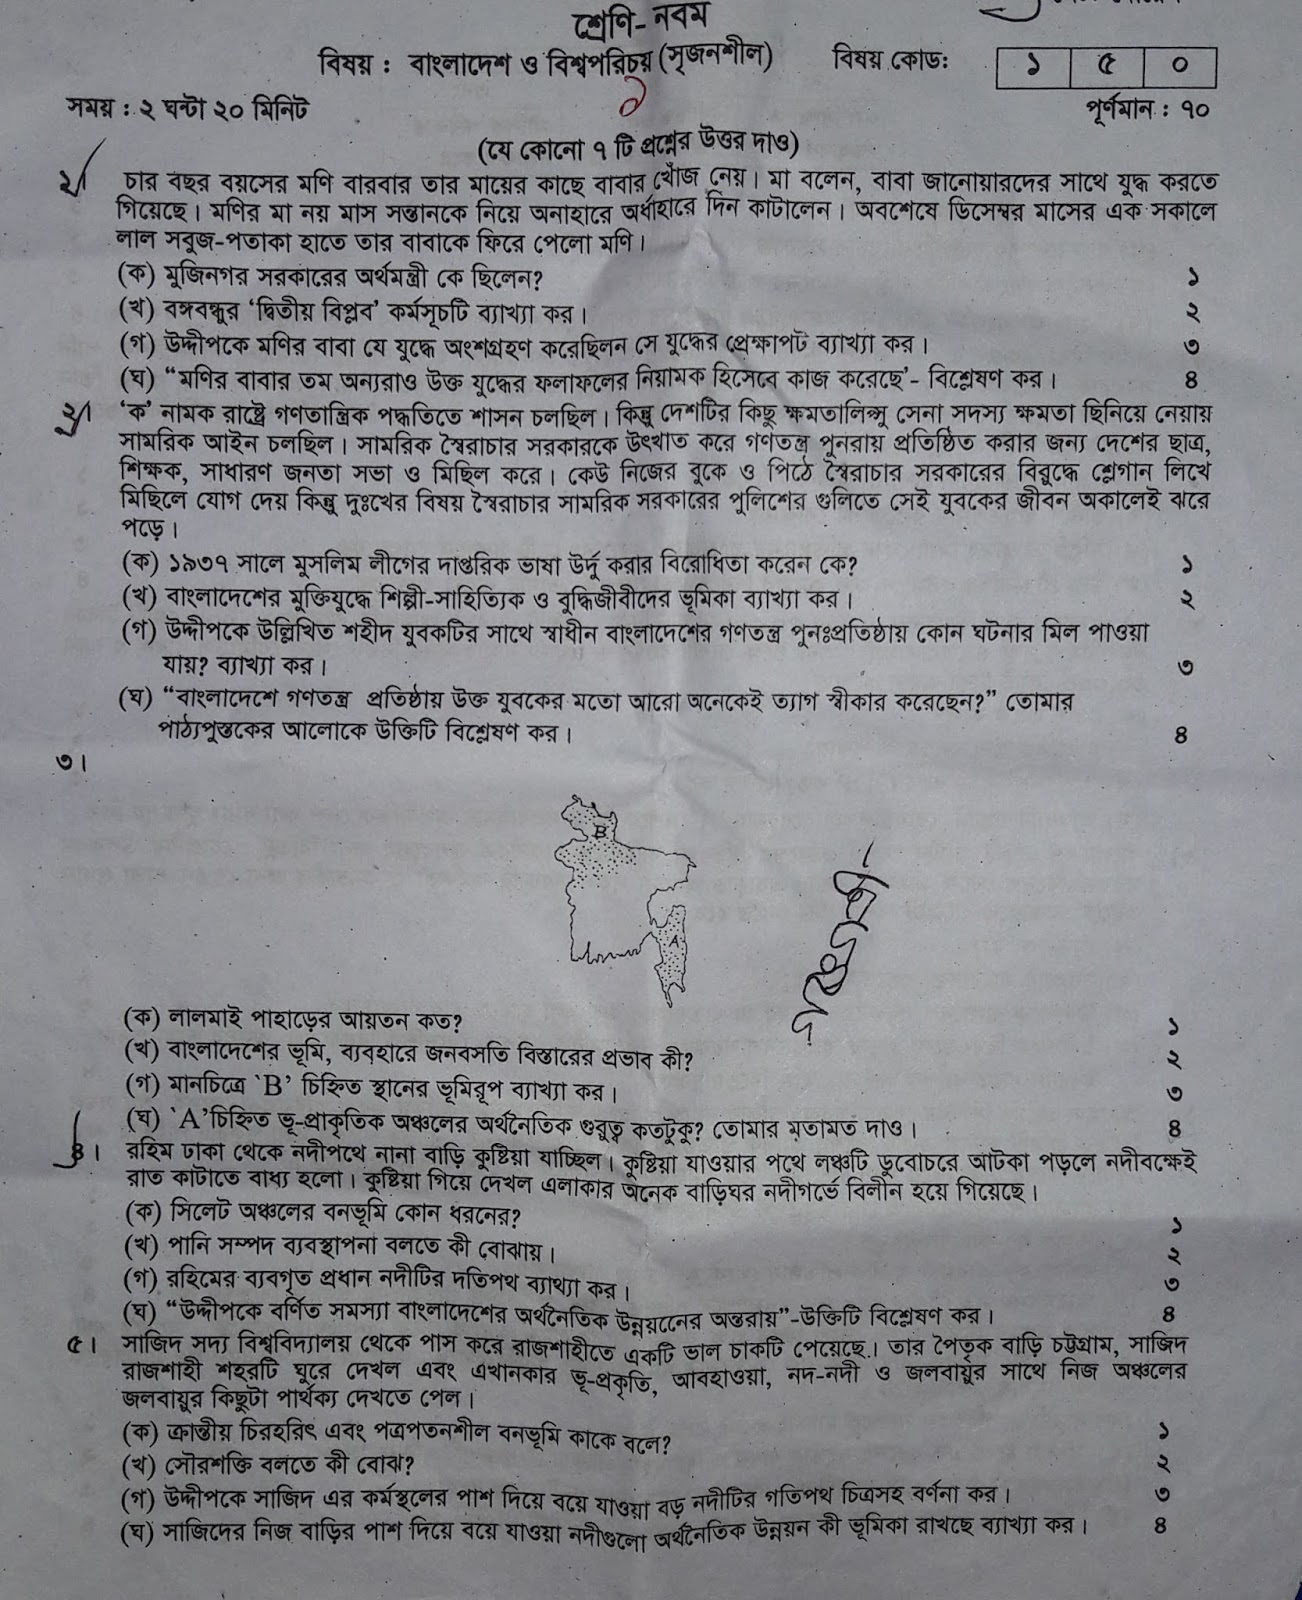 শ্রেণি- নবম
বিষয় : বাংলাদেশ ও বিশ্বপরিচয় (সৃজনশীল) বিষয় কোড: ১ ৫ ০
সময় : ২ ঘন্টা ২০ মিনিট পূর্ণমান : ৭০
(যে কোনো ৭ টি প্রশ্নের উত্তর দাও)
১। চার বছর বয়সের মণি বারবার তার মায়ের কাছে বাবার খোঁজ নেয়। মা বলেন, বাবা জানোয়ারদের সাথে যুদ্ধ করতে
গিয়েছে। মণির মা নয় মাস সন্তানকে নিয়ে অনাহারে অর্ধাহারে দিন কাটালেন। অবশেষে ডিসেম্বর মাসের এক সকালে
লাল সবুজ-পতাকা হাতে তার বাবাকে ফিরে পেলো মণি।
(ক) মুজিনগর সরকারের অর্থমন্ত্রী কে ছিলেন? ১
(খ) বঙ্গবন্ধুর ‘দ্বিতীয় বিপ্লব’ কর্মসূচটি ব্যাখ্যা কর। ২
(গ) উদ্দীপকে মণির বাবা যে যুদ্ধে অংশগ্রহণ করেছিলন সে যুদ্ধের প্রেক্ষাপট ব্যাখ্যা কর। ৩
(ঘ) “মণির বাবার তম অন্যরাও উক্ত যুদ্ধের ফলাফলের নিয়ামক হিসেবে কাজ করেছে’- বিশ্লেষণ কর। ৪
২। ‘ক’ নামক রাষ্ট্রে গণতান্ত্রিক পদ্ধতিতে শাসন চলছিল। কিন্তু দেশটির কিছু ক্ষমতালিপ্সু সেনা সদস্য ক্ষমতা ছিনিয়ে নেয়ায়
সামরিক আইন চলছিল। সামরিক স্বৈরাচার সরকারকে উৎখাত করে গণতন্ত্র পুনরায় প্রতিষ্ঠিত করার জন্য দেশের ছাত্র,
শিক্ষক, সাধারণ জনতা সভা ও মিছিল করে। কেউ নিজের বুকে ও পিঠে স্বৈরাচার সরকারের বিরুদ্ধে শ্লেগান লিখে
মিছিলে যোগ দেয় কিন্তু দুঃখের বিষয় স্বৈরাচার সামরিক সরকারের পুলিশের গুলিতে সেই যুবকের জীবন অকালেই ঝরে
পড়ে।
(ক) ১৯৩৭ সালে মুসলিম লীগের দাপ্তরিক ভাষা উর্দু করার বিরোধিতা করেন কে? ১
(খ) বাংলাদেশের মুক্তিযুদ্ধে শিল্পী-সাহিত্যিক ও বুদ্ধিজীবীদের ভূমিকা ব্যাখ্যা কর। ২
(গ) উদ্দীপকে উল্লিখিত শহীদ যুবকটির সাথে স্বাধীন বাংলাদেশের গণতন্ত্র পুনঃপ্রতিষ্ঠায় কোন ঘটনার মিল পাওয়া
যায়? ব্যাখ্যা কর। ৩
(ঘ) “বাংলাদেশে গণতন্ত্র প্রতিষ্ঠায় উক্ত যুবকের মতো আরো অনেকেই ত্যাগ স্বীকার করেছেন?” তোমার
পাঠ্যপুস্তকের আলোকে উক্তিটি বিশ্লেষণ কর। ৪
৩।
B
A
(ক) লালমাই পাহাড়ের আয়তন কত? ১
(খ) বাংলাদেশের ভূমি, ব্যবহারে জনবসতি বিস্তারের প্রভাব কী? ২
(গ) মানচিত্রে `B’ চিহ্নিত স্থানের ভূমিরূপ ব্যাখ্যা কর। ৩
(ঘ) `A’চিহ্নিত ভূ-প্রাকৃতিক অঞ্চলের অর্থনৈতিক গুরুত্ব কতটুকু? তোমার মতামত দাও। ৪
৪। রহিম ঢাকা থেকে নদীপথে নানা বাড়ি কুষ্টিয়া যাচ্ছিল। কুষ্টিয়া যাওয়ার পথে লঞ্চটি ডুবোচরে আটকা পড়লে নদীবক্ষেই
রাত কাটাতে বাধ্য হলো। কুষ্টিয়া গিয়ে দেখল এলাকার অনেক বাড়িঘর নদীগর্ভে বিলীন হয়ে গিয়েছে।
(ক) সিলেট অঞ্চলের বনভূমি কোন ধরনের? ১
(খ) পানি সম্পদ ব্যবস্থাপনা বলতে কী বোঝায়। ২
(গ) রহিমের ব্যবগৃত প্রধান নদীটির দতিপথ ব্যাখ্যা কর। ৩
(ঘ) “উদ্দীপকে বর্ণিত সমস্যা বাংলাদেশের অর্থনৈতিক উন্নয়নেের অন্তরায়”-উক্তিটি বিশ্লেষণ কর। ৪
৫। সাজিদ সদ্য বিশ্ববিদ্যালয় থেকে পাস করে রাজশাহীতে একটি ভাল চাকটি পেয়েছে। তার পৈতৃক বাড়ি চট্টগ্রাম, সাজিদ
রাজশাহী শহরটি ঘুরে দেখল এবং এখানকার ভূ-প্রকৃতি, আবহাওয়া, নদ-নদী ও জলবায়ুর সাথে নিজ অঞ্চলের
জলবায়ুর কিছুটা পার্থক্য দেখতে পেল।
(ক) ক্রান্তীয় চিরহরিৎ এবং পত্রপতনশীল বনভূমি কাকে বলে? ১
(খ) সৌরশক্তি বলতে কী বোঝ? ২
(গ) উদ্দীপকে সাজিদ এর কর্মস্থলের পাশ দিয়ে বয়ে যাওয়া বড় নদীটির গতিপথ চিত্রসহ বর্ণনা কর। ৩
(ঘ) সাজিদের নিজ বাড়ির পাশ দিয়ে বয়ে যাওয়া নদীগুলো অর্থনৈতিক উন্নয়ন কী ভূমিকা রাখছে ব্যাখ্যা কর। ৪